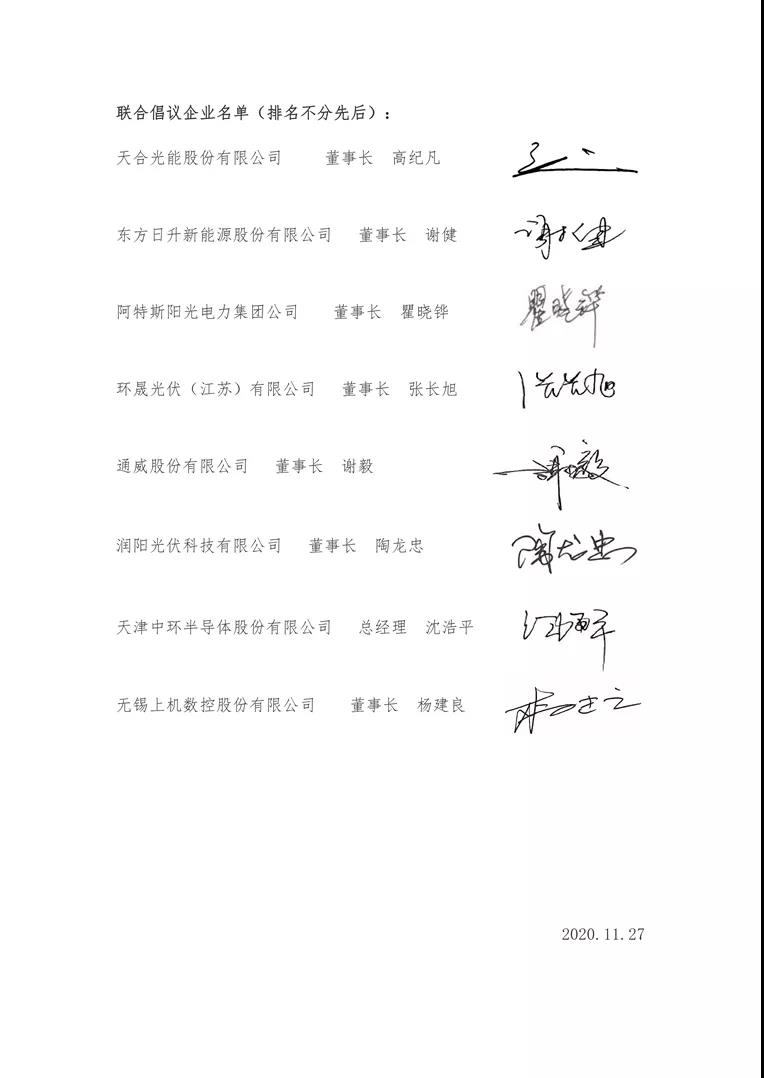 联合倡议企业名单（排名不分先后）：
天合光能股份有限公司 董事长 高纪凡
东方日升新能源股份有限公司 董事长 谢健
阿特斯阳光电力集团公司 董事长 瞿晓铧
环晟光伏（江苏）有限公司 董事长 张长旭
通威股份有限公司 董事长 谢毅
润阳光伏科技有限公司 董事长 陶龙忠
天津中环半导体股份有限公司 总经理 沈浩平
无锡上机数控股份有限公司 董事长 杨建良
2020.11.27